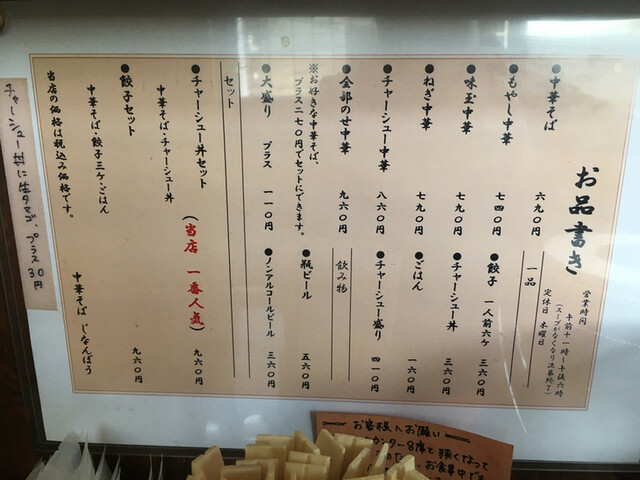 お品書き
営業時間
午前十一時〜午後六時
(スープがなくなり次第終了)
定休日 木曜日
●中華そば 六九〇円
●もやし中華 七四〇円
●味玉中華 七九〇円
●ねぎ中華 七九〇円
●チャーシュー中華 八六〇円
●全部のせ中華 九六〇円
※お好きな中華そば、
プラス二七〇円でセットにできます。
●大盛り プラス 一一〇円
一品
●餃子 一人前六ケ 三六〇円
●チャーシュー丼 三六〇円
●ごはん 一六〇円
●チャーシュー盛り 四一〇円
飲み物
●瓶ビール 五六〇円
●ノンアルコールビール 三六〇円
セット
●チャーシュー丼セット (当店 一番人気) 九六〇円
中華そば・チャーシュー丼
●餃子セット 九六〇円
中華そば・餃子三ケ・ごはん
当店の価格は税込み価格です。
中華そば じなんぼう
チャーシュー丼に生タマゴ、プラス30円
お客様へお願い
カウンター8席と狭くなって
お食事中でも